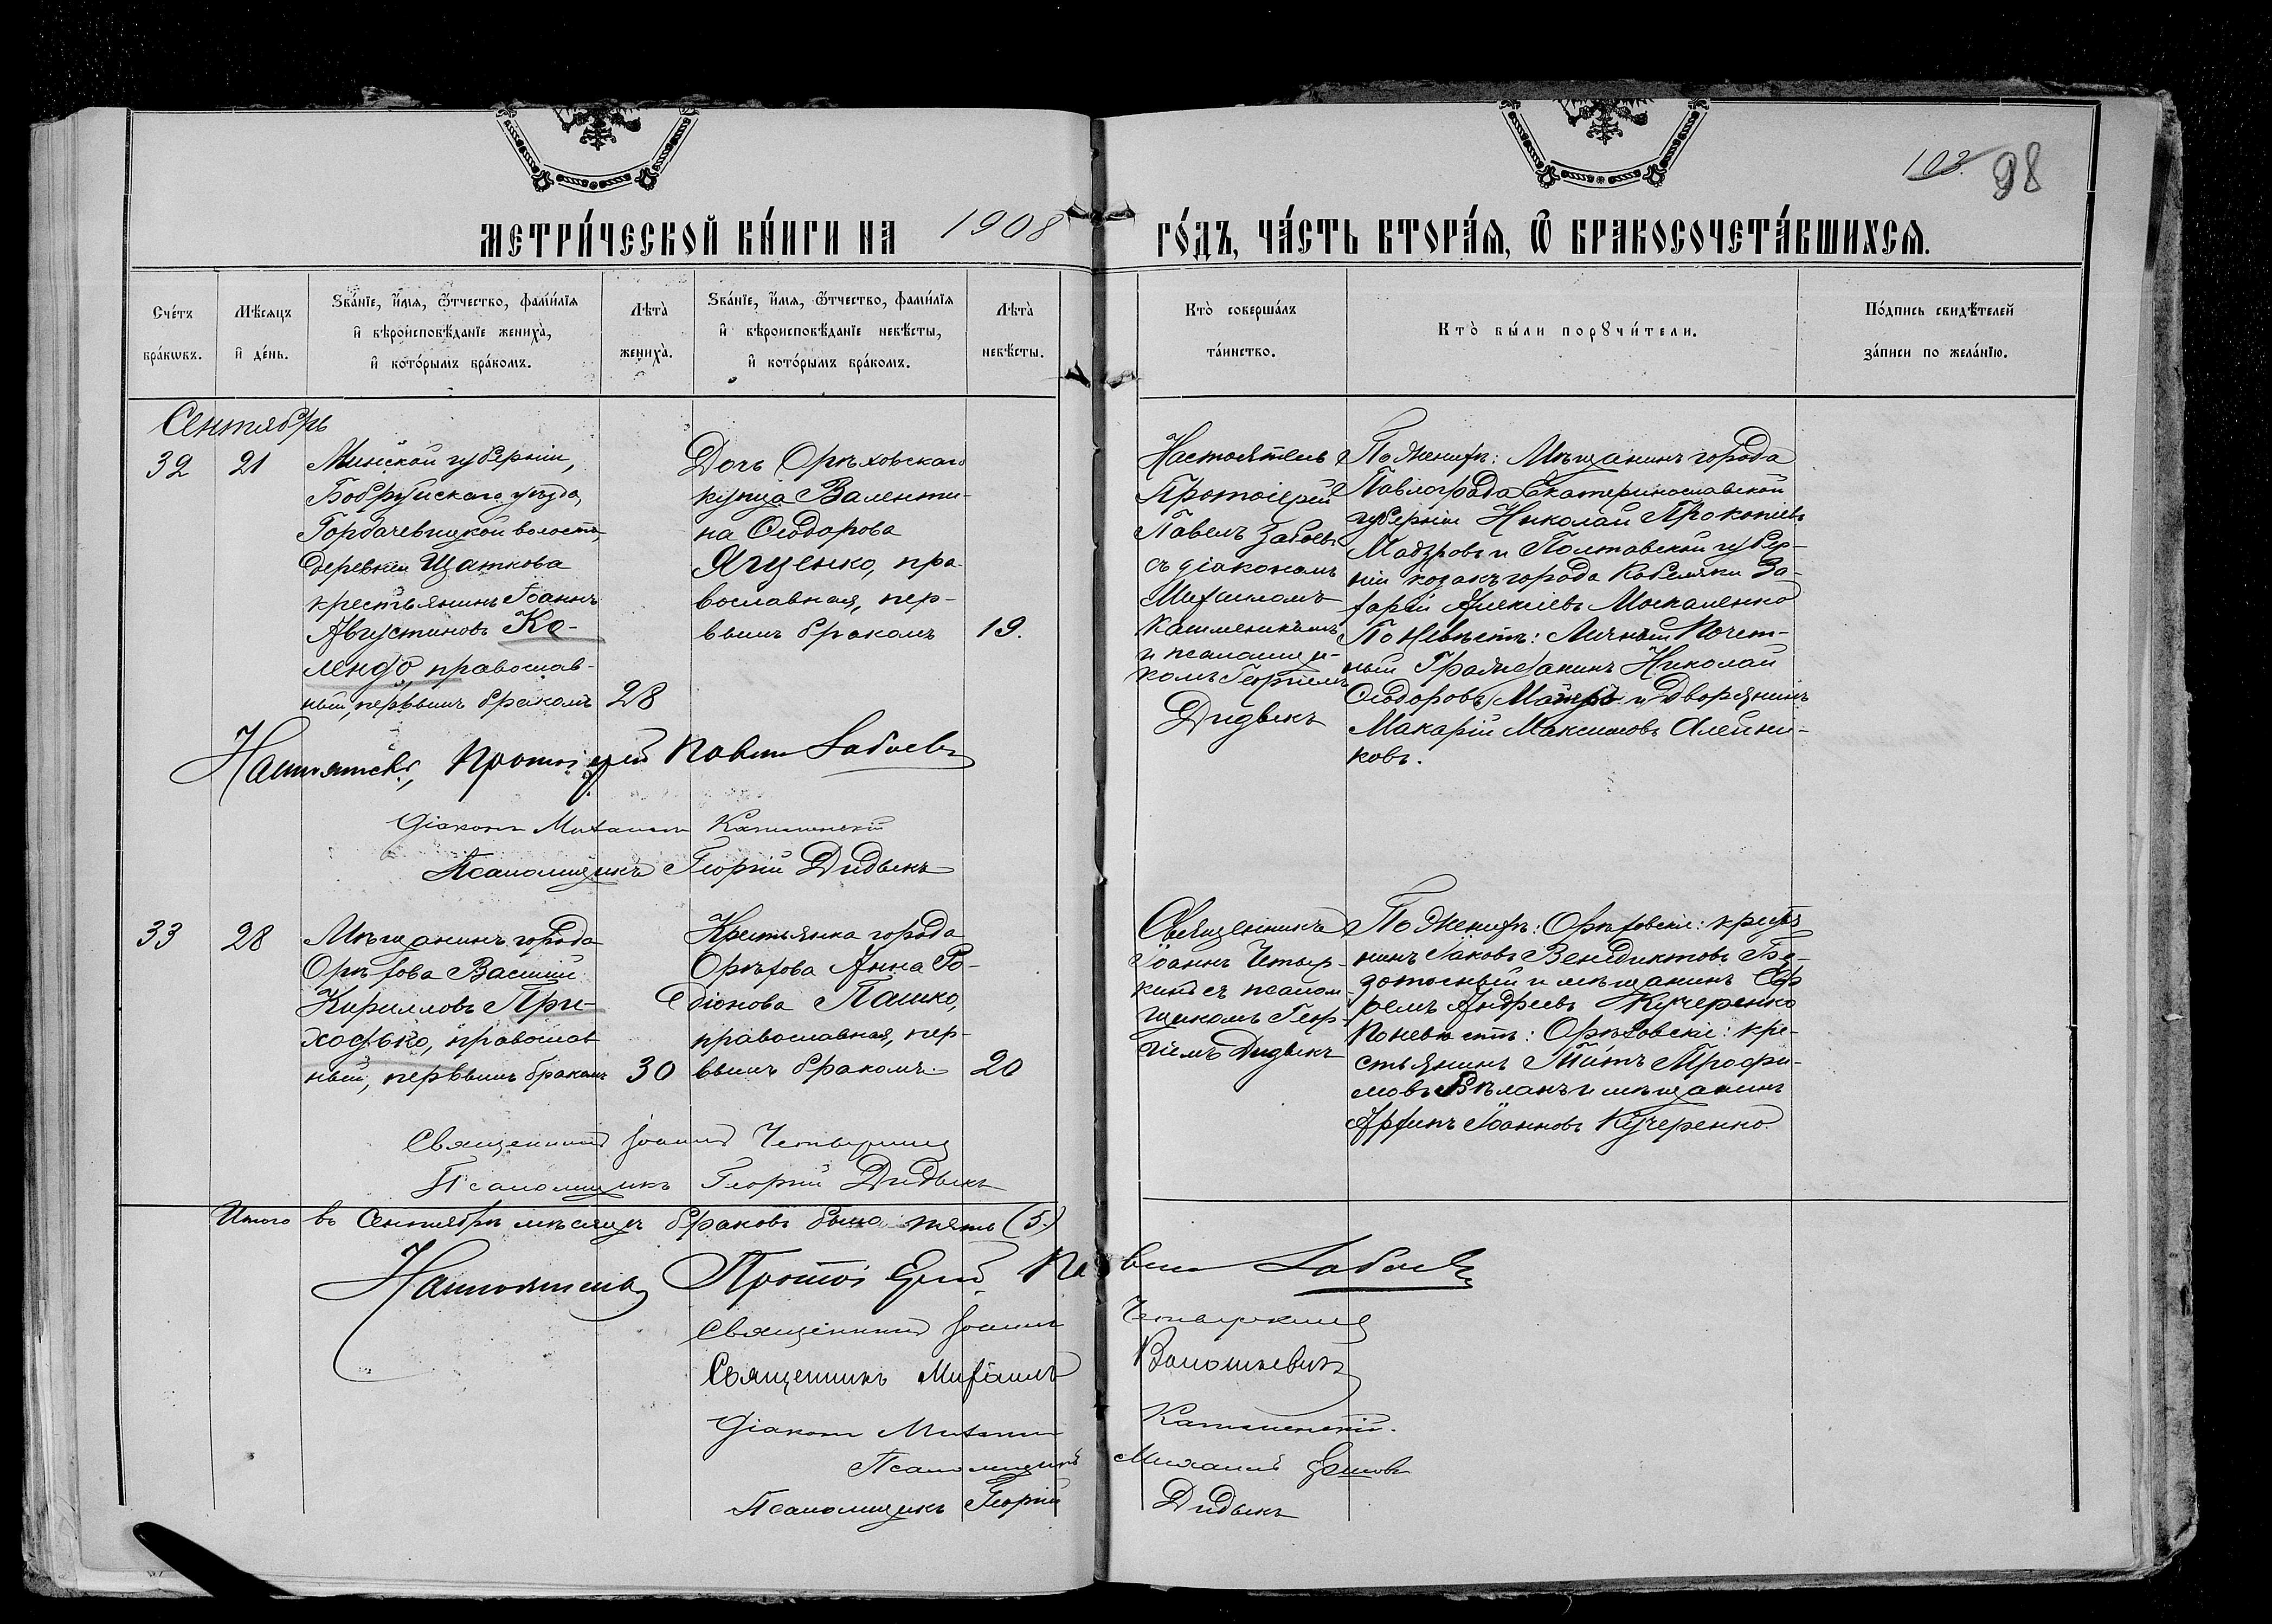 103. 98
МЕТРИ́ЧЕСКОЙ КНИ́ГИ НА 1908 ГО́ДЪ, ЧА́СТЬ ВТОРА́Я, Ѿ БРАКОСОЧЕТА́ВШИХСЯ.
Сче́тъ бра́кѡвъ.
Мѣ́сяцъ и де́нь.
Зва́нїе, и́мя, ѻ́тчество, фамилїя
и вѣроисповѣ́данїе жениха̀,
и кото́рымъ бра́комъ.
Лѣта̀ жениха̀.
Зва́нїе, и́мя, ѻ́тчество, фамилїя
и вѣроисповѣ́данїе невѣ́сты,
и кото́рымъ бра́комъ.
Лѣта̀ невѣ́сты.
Кто̀ соверша́лъ
та́инство.
Кто̀ бы́ли порꙋчи́тели.
По́дпись свидѣ́телей
за́писи по жела́нїю.
Сентябрь
32 21
Минской губерніи,
Бобруйскаго уѣзда,
Горбачевицкой волости,
деревни Щаткова
крестьянинъ Іоаннъ
Августиновъ Ко-
лендо, православ-
ный, первымъ бракомъ 28
Дочь Орѣховскаго
купца Валенти-
на Ѳеодорова
Яценко, пра-
вославная, пер-
вымъ бракомъ 19.
Настоятель
Протоіерей
Павелъ Забаевъ
съ діакономъ
Михаиломъ
и псаломщи-
комъ Георгіемъ
Дидыкъ
По женихѣ: Мѣщанинъ города
Павлограда Екатеринославской
губерніи Николай Прокопіевъ
и Полтавской губер-
ніи козакъ города Кобеляки За-
харій Алексіевъ Москаленко
По невѣстѣ: Личный Почет-
ный Гражданинъ Николай
Ѳеодоровъ и Дворянинъ
Макарій Максимовъ Алейни-
ковъ.
Настоятель, Протоіерей Павелъ Забаевъ
Діаконъ Михаилъ
Псаломщикъ Георгій Дидыкъ
33 28
Мѣщанинъ города
Орѣхова Василій
Кирилловъ При-
ходько, православ
ный, первымъ бракомъ 30
Крестьянка города
Орѣхова Анна Ро-
діонова Пашко,
православная, пер-
вымъ бракомъ. 20
Священникъ
Іоаннъ Четыр-
кинъ съ псалом-
щикомъ Геор-
гіемъ Дидыкъ
По женихѣ: Орѣховскіе: крестья
нинъ Іаковъ Венедиктовъ
и мѣщанинъ Еф
ремъ Андреевъ Кучеренко
По невѣстѣ: Орѣховскіе: кре-
стьянинъ Титъ Трофи-
мовъ Бѣланъ и мѣщанинъ
Іоанновъ Кучеренко.
Священникъ Іоаннъ Четыркинъ
Псаломщикъ Георгій Дидыкъ
Итого въ Сентябрѣ мѣсяцѣ браковъ было пять (5.)
Настоятель Протоіерей Павелъ Забаевъ
Священникъ Іоаннъ Четыркинъ
Священникъ Михаилъ Волошкевичъ
Діаконъ Михаилъ
Псаломщикъ Михаилъ
Псаломщикъ Георгій Дидыкъ